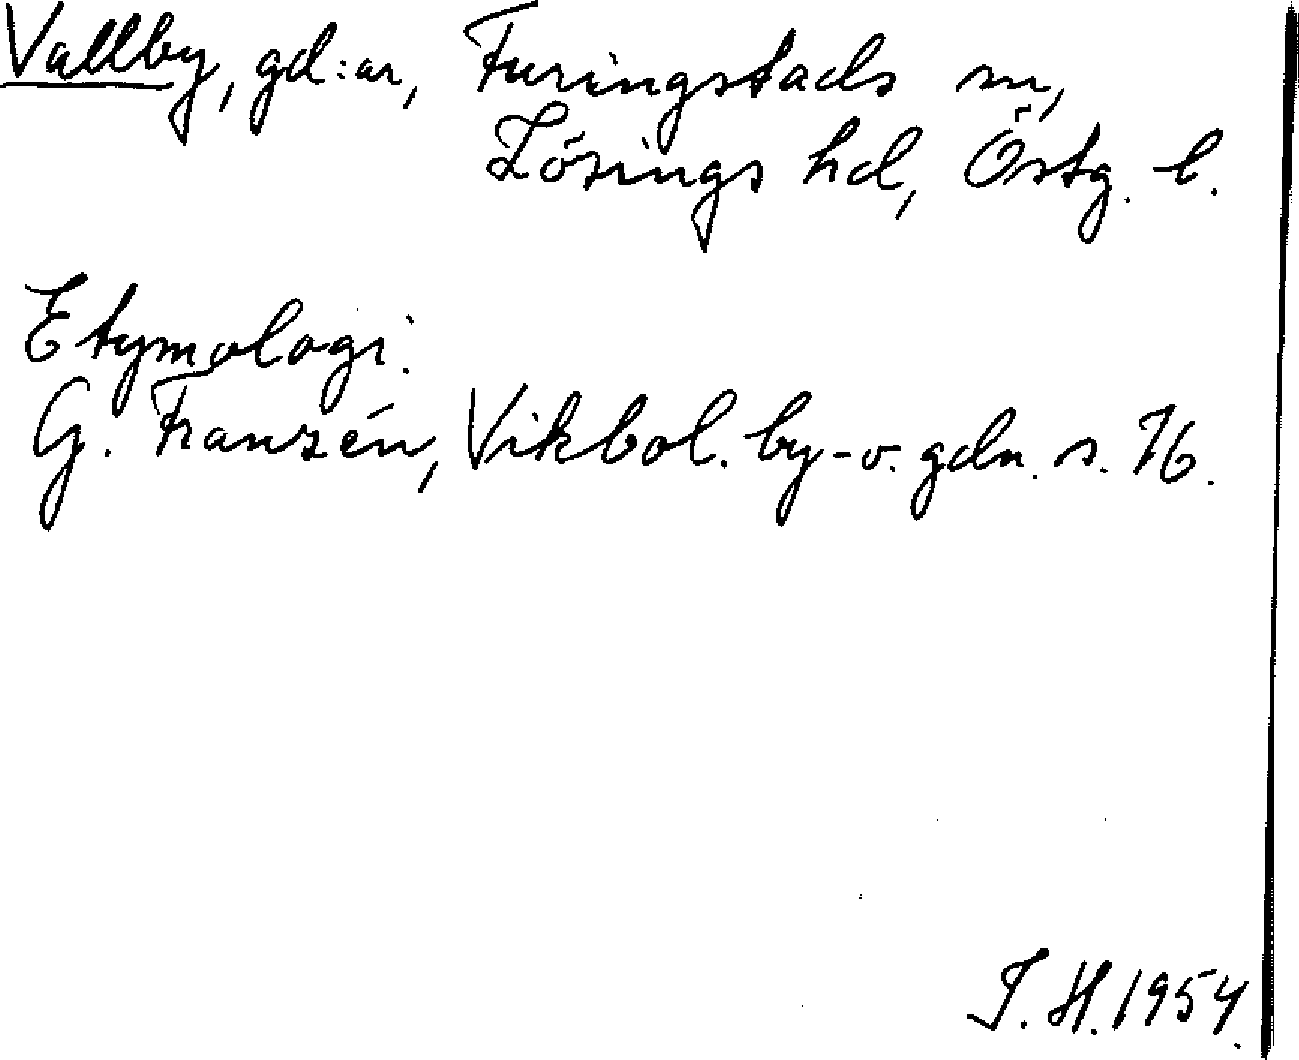 Vallby, gd:ar, Furingstads sn,
Lösings hd, Östg. l.
Etymologi.
G. Franzén, Vikbol. by- o. gdn. s. 76.
I. H. 1954.